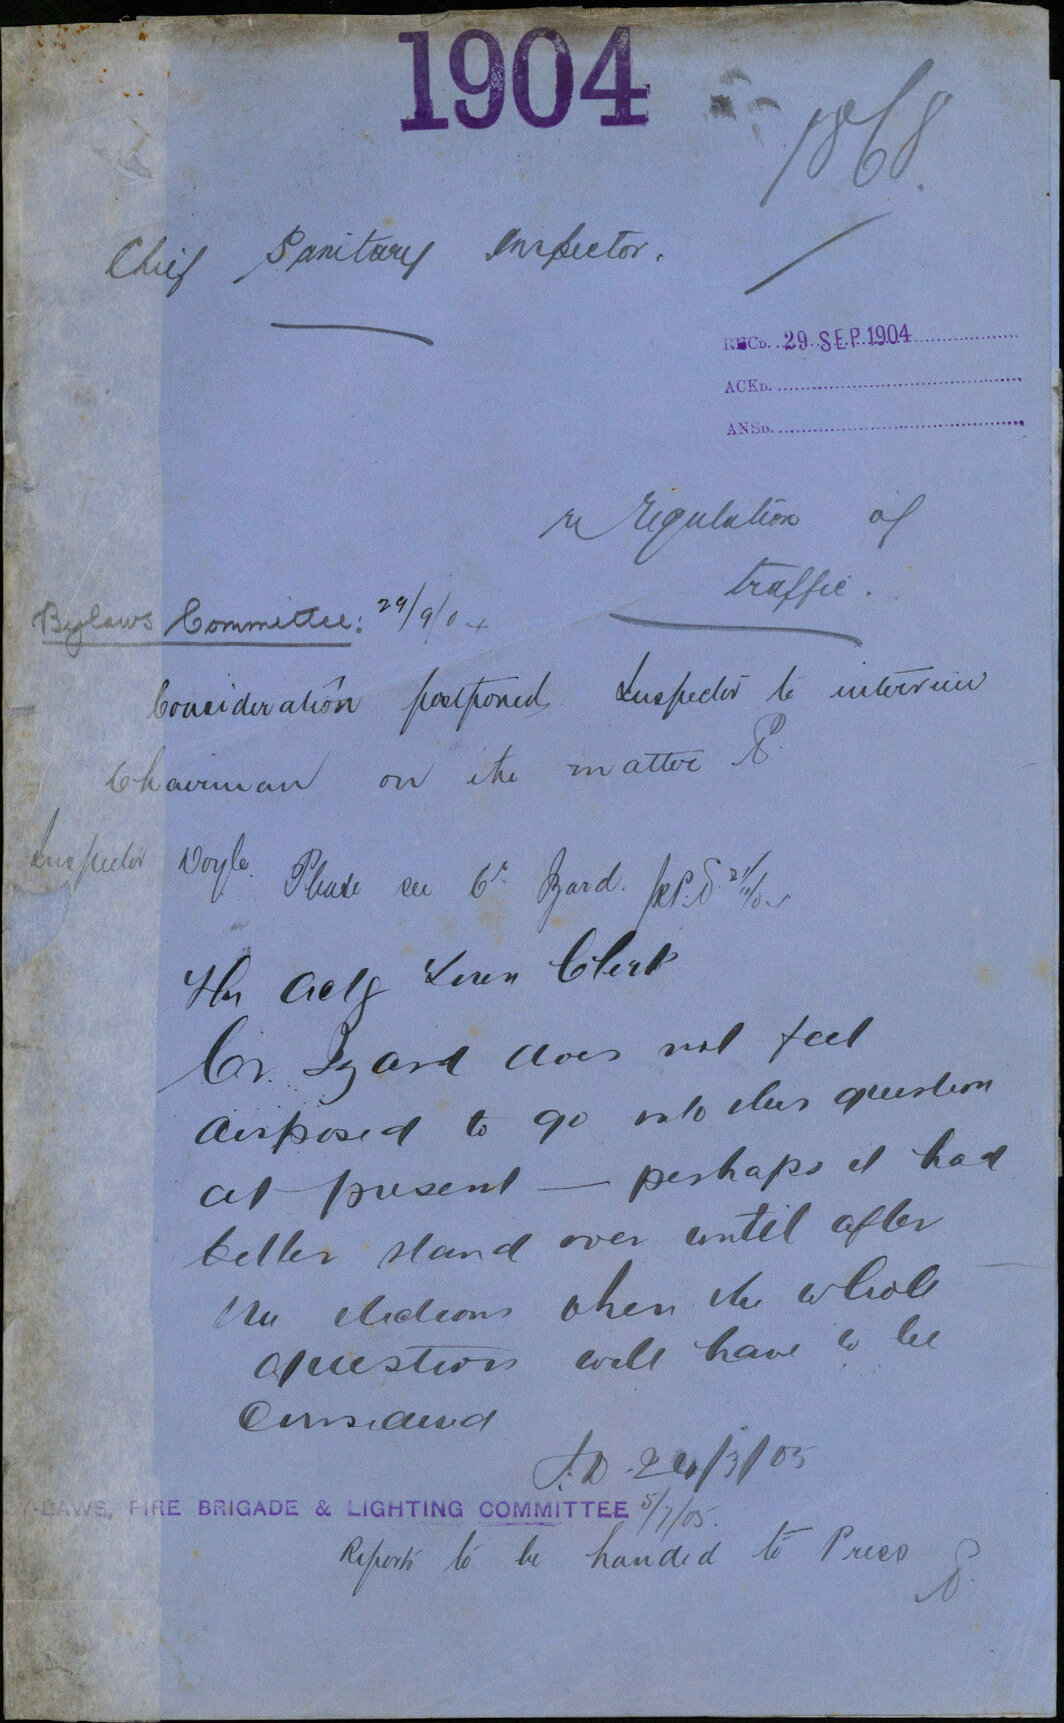 1904
1868
Chief Sanitary Inspector.
RECD. 29 SEP. 1904
ACKD.
ANSD.
re regulation of
traffic.
Bylaws Committee: 29/9/04
Consideration postponed Inspector to interview
Chairman on the matter
Inspector Doyle
Please see Cr. Izard.
The Actg Town Clerk
Cr. Izard does not feel
disposed to go into this question
at present — perhaps it had
better stand over until after
the elections when the whole
question will have to be
Considered
J.D. 24/3/05
BY-LAWS, FIRE BRIGADE & LIGHTING COMMITTEE 5/7/05.
Reports to be handed to Press